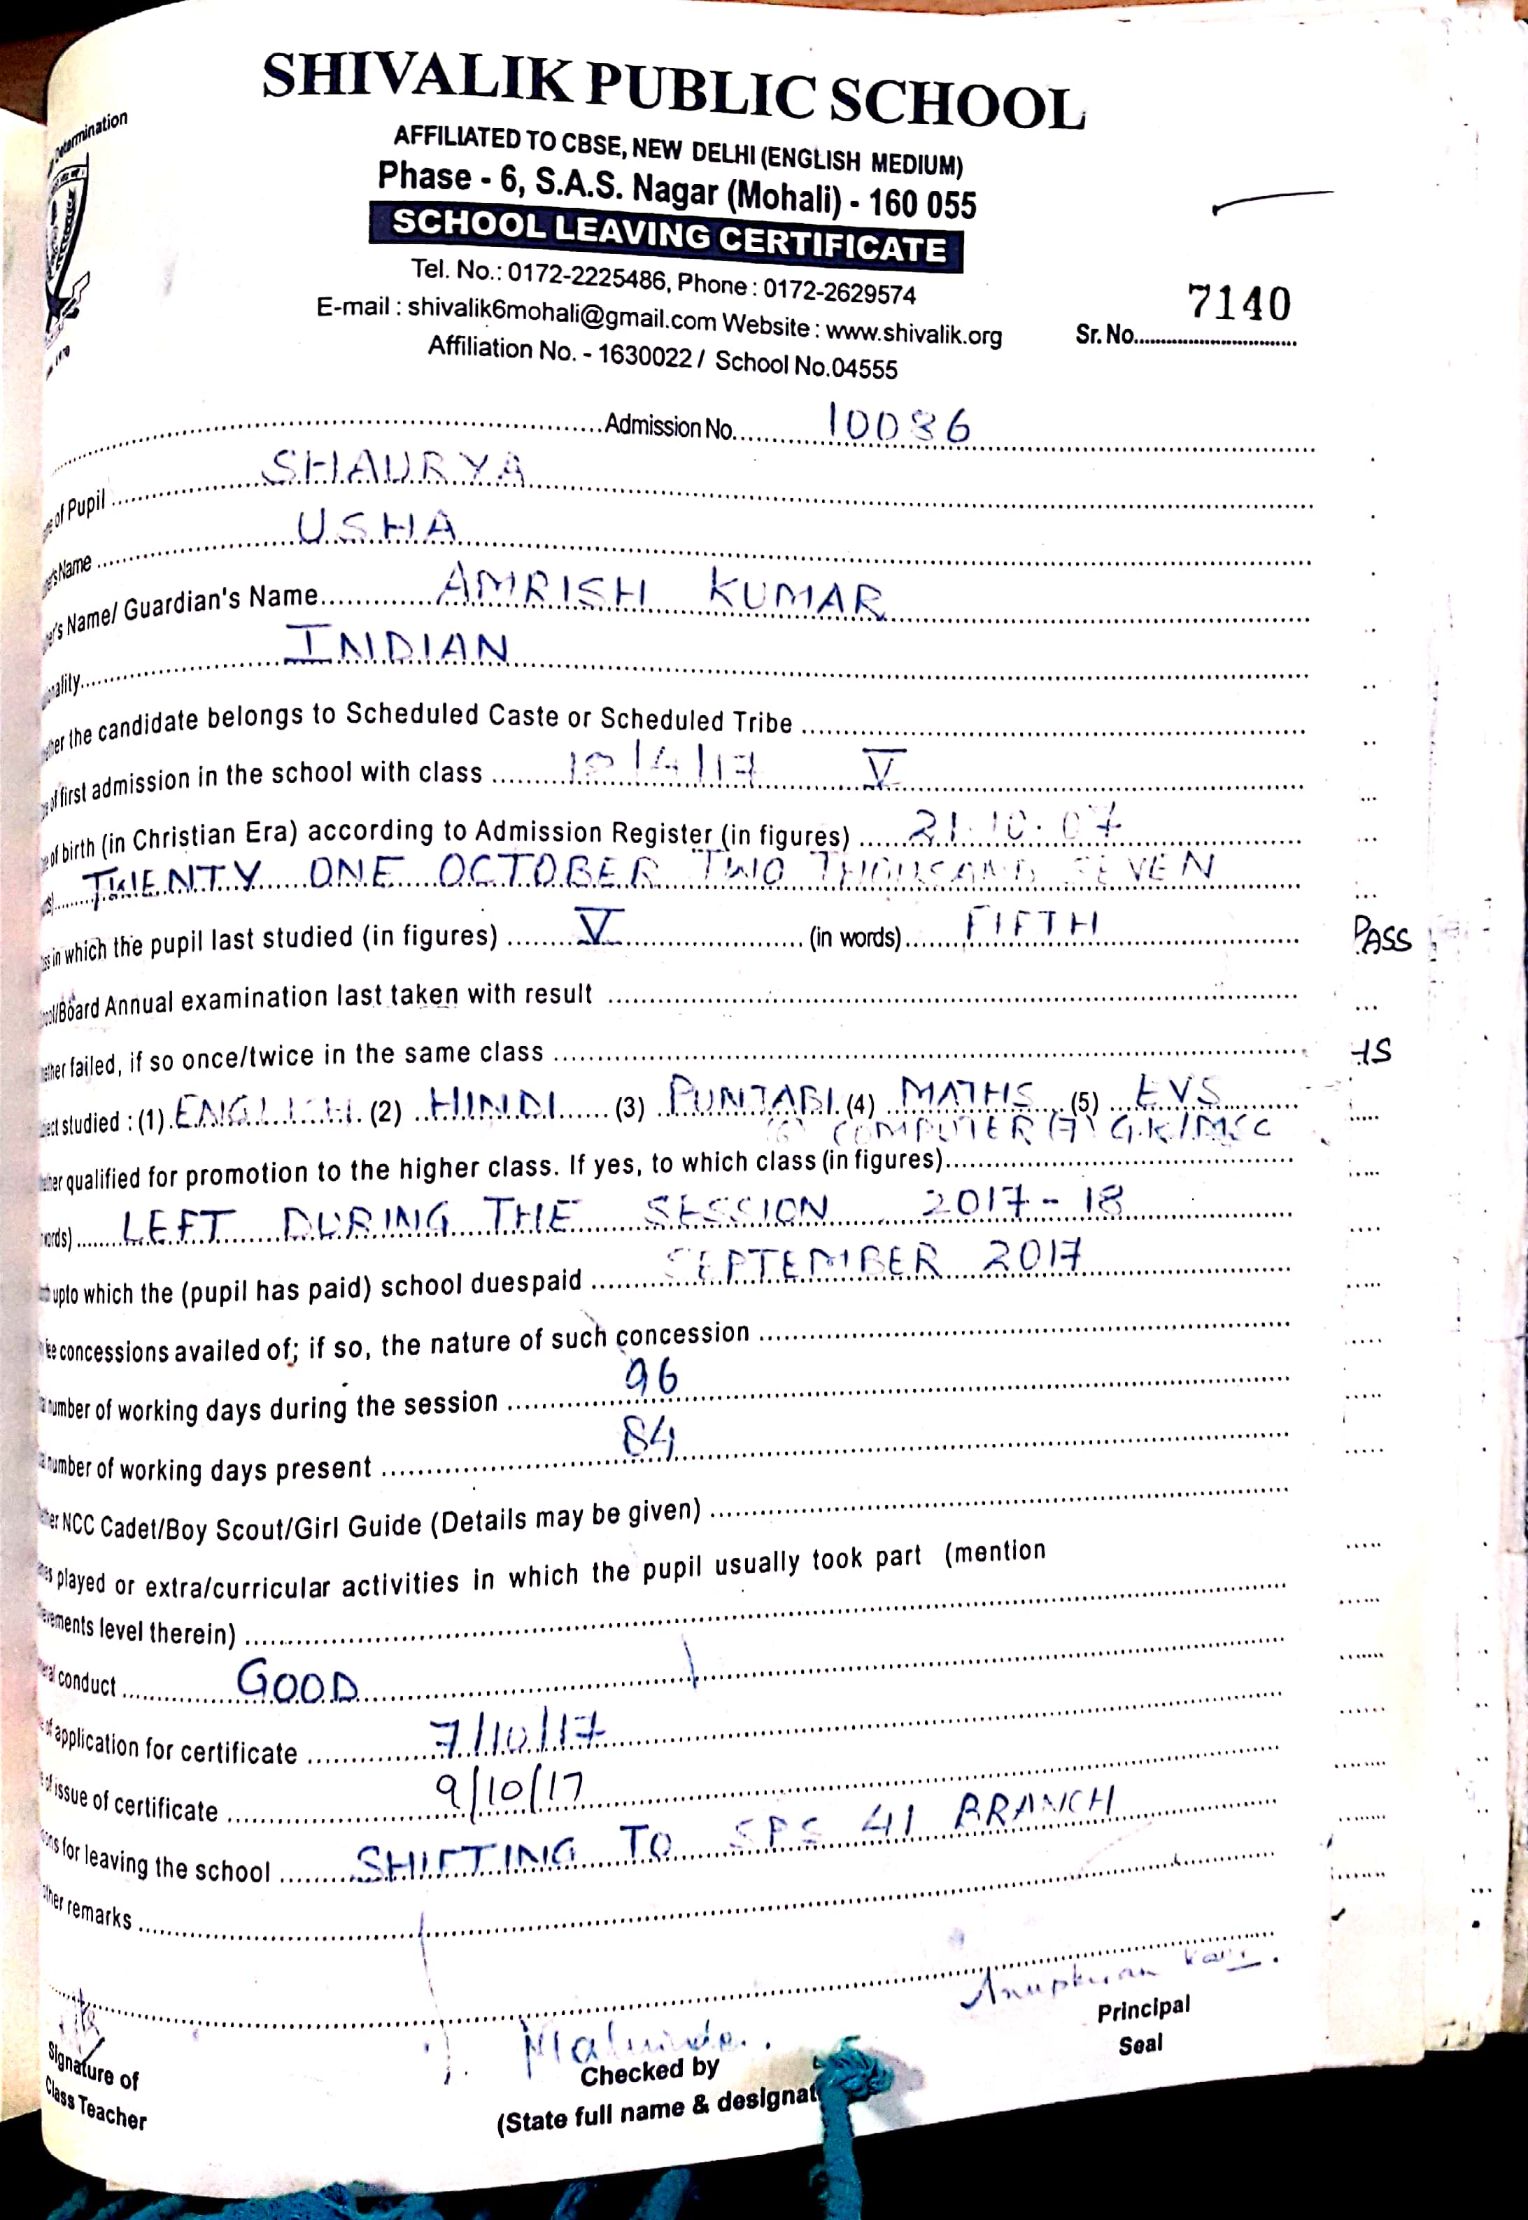 Determination
SHIVALIK PUBLIC SCHOOL
AFFILIATED TO CBSE, NEW DELHI (ENGLISH MEDIUM)
Phase - 6, S.A.S. Nagar (Mohali) - 160 055
SCHOOL LEAVING CERTIFICATE
Tel. No.: 0172-2225486, Phone : 0172-2629574
E-mail : shivalik6mohali@gmail.com Website : www.shivalik.org
Affiliation No. - 1630022 / School No.04555
7140
Sr. No.
Admission No. 10086
of Pupil SHAURYA
Name USHA
Name/ Guardian's Name AMRISH KUMAR
ality INDIAN
the candidate belongs to Scheduled Caste or Scheduled Tribe
first admission in the school with class 18/4/17 V
of birth (in Christian Era) according to Admission Register (in figures) 21.10.07
TWENTY ONE OCTOBER TWO THOUSAND SEVEN
in which the pupil last studied (in figures) V (in words) FIFTH
PASS
/Board Annual examination last taken with result
failed, if so once/twice in the same class
HS
studied : (1) ENGLISH (2) HINDI (3) PUNJABI (4) MATHS (5) EVS
(6) COMPUTER (7) G.K/M.SC
qualified for promotion to the higher class. If yes, to which class (in figures)
ords) LEFT DURING THE SESSION 2017-18
upto which the (pupil has paid) school duespaid SEPTEMBER 2017
concessions availed of; if so, the nature of such concession
number of working days during the session 96
number of working days present 84
NCC Cadet/Boy Scout/Girl Guide (Details may be given)
played or extra/curricular activities in which the pupil usually took part (mention
ements level therein)
conduct GOOD
of application for certificate 7/10/17
of issue of certificate 9/10/17
for leaving the school SHIFTING TO SPS 41 BRANCH
other remarks
Anupkiran Kaur
Principal
Seal
Signature of
Class Teacher
Checked by
(State full name & designat